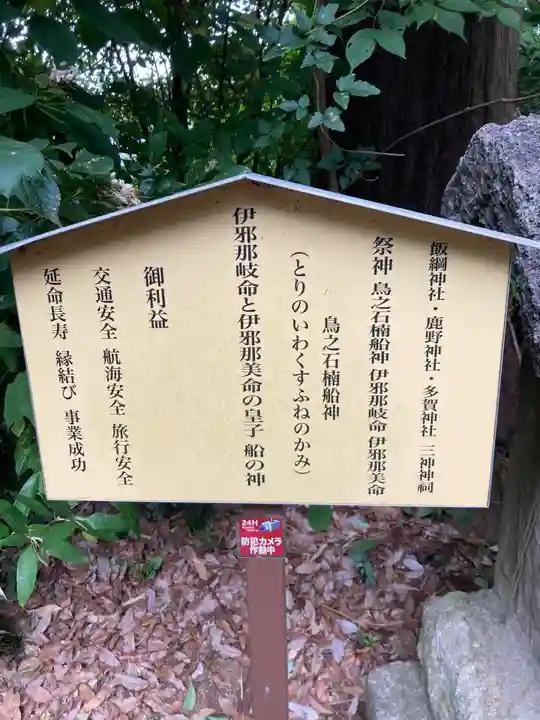 飯綱神社・鹿野神社・多賀神社 三神神祠
祭神 鳥之石楠船神 伊邪那岐命 伊邪那美命
鳥之石楠船神
(とりのいわくすふねのかみ)
伊邪那岐命と伊邪那美命の皇子 船の神
御利益
交通安全 航海安全 旅行安全
延命長寿 縁結び 事業成功
24H
防犯カメラ
作動中